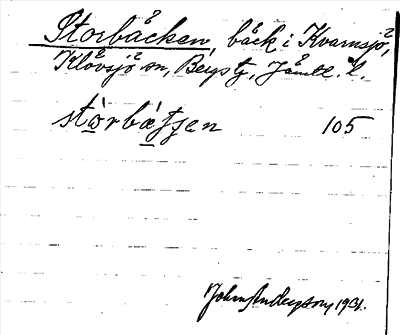 Storbäcken, bäck i Kvarnsjö,
Klövsjö sn, Bergs tg, Jämtl. l.
stòrbǽʃʃen 105
John Anderson, 1931.